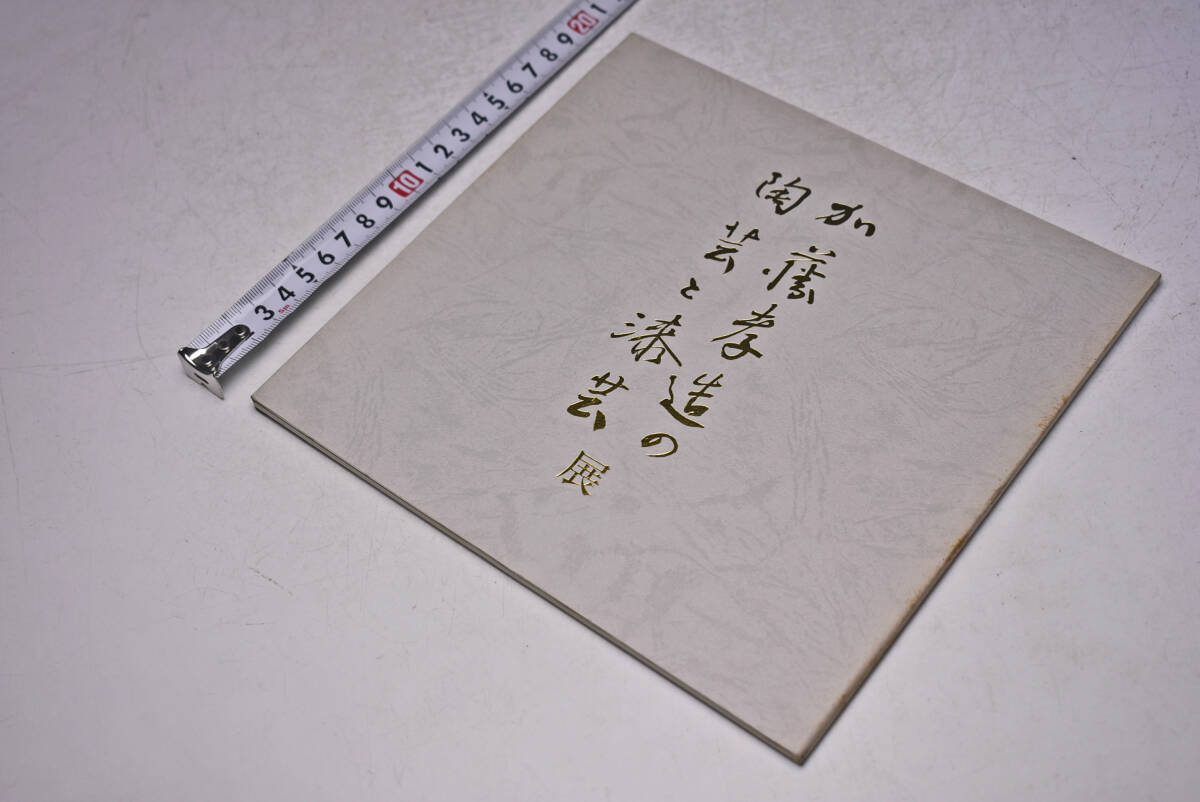 加藤孝造の
陶芸と漆芸展
3 4 5 6 7 8 9 10 1 2 3 4 5 6 7 8 9 20 1
5m